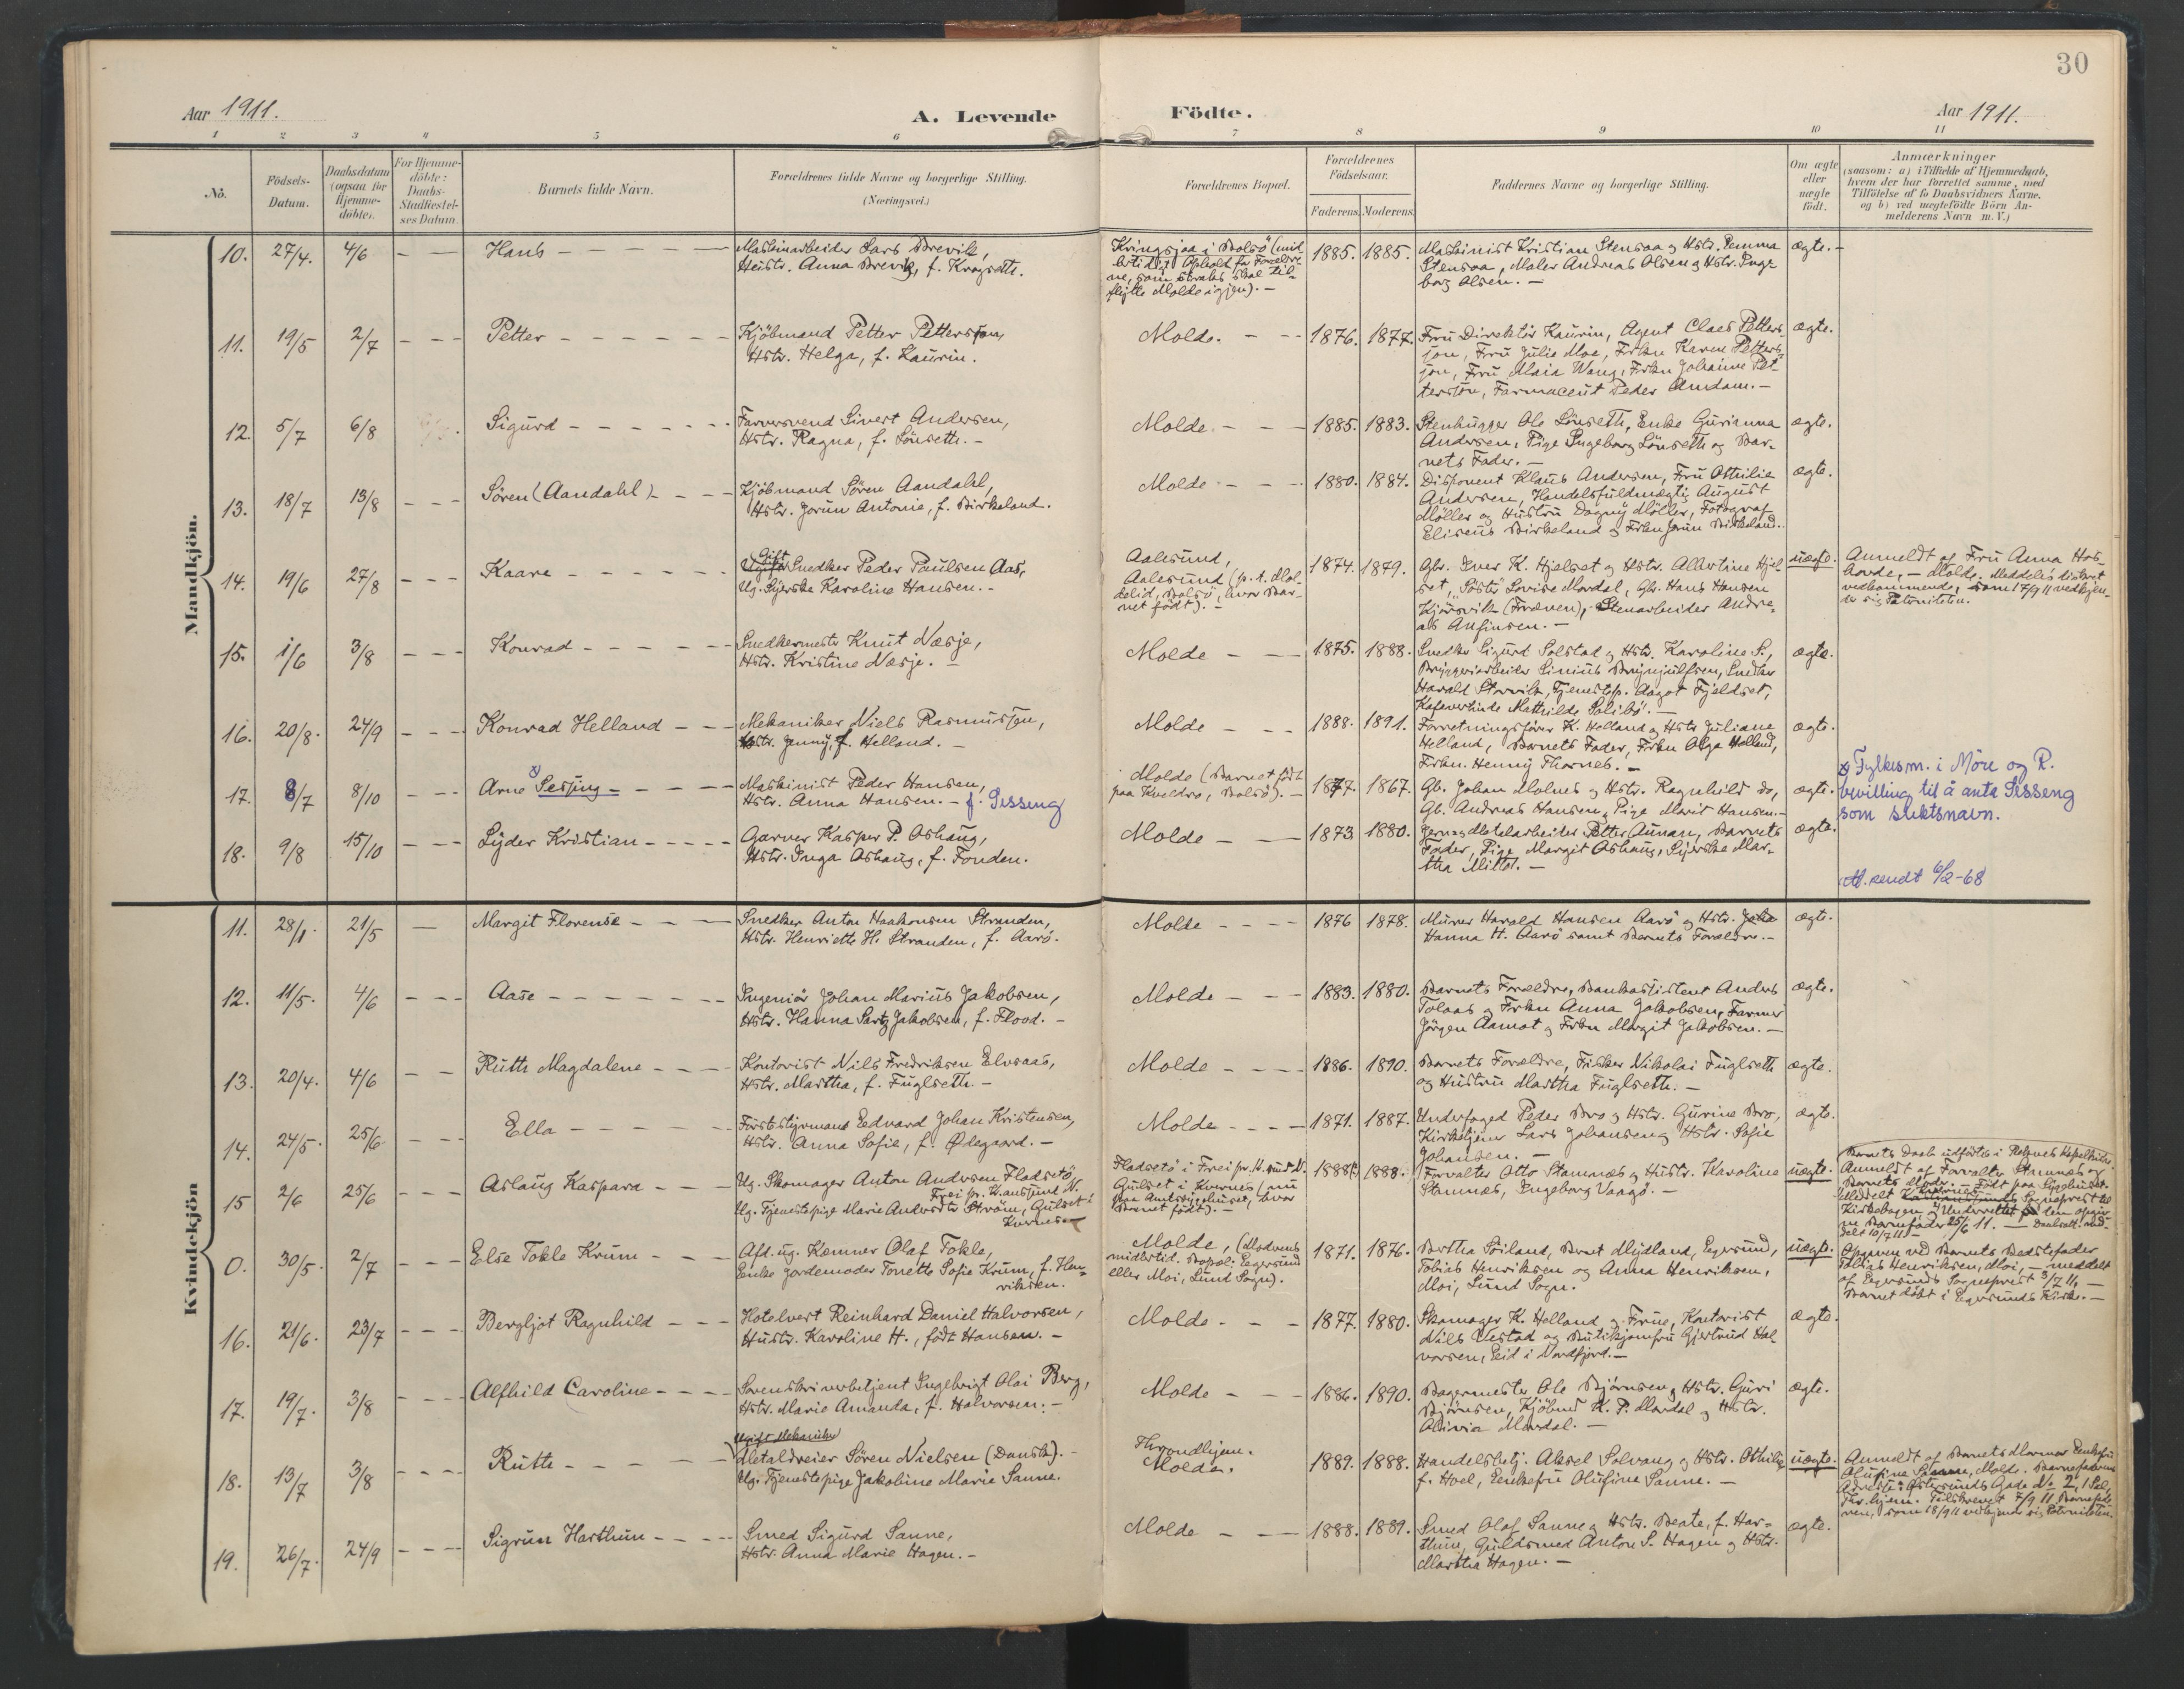 30
Aar 1911.
A. Levende Födte.
Aar 1911.
1 2 3 4 5 6 7 8 9 10 11
No.
Födsels-Datum.
Daabsdatum (ogsaa for Hjemmedöbte).
For Hjemmedöbte: Daabs-Stadfæstelses Datum.
Barnets fulde Navn.
Forældrenes fulde Navne og borgerlige Stilling. (Næringsvei.)
Forældrenes Bopæl.
Forældrenes Födselsaar.
Faderens. Moderens.
Faddernes Navne og borgerlige Stilling.
Om ægte eller uægte födt.
Anmærkninger
(saasom: a) i Tilfælde af Hjemmedaab, hvem der har forrettet samme, med Tilföielse af to Daabsvidners Navne, og b) ved uægtefödte Börn Anmelderens Navn m. V.)
Mandkjön.
10. 27/4. 4/6 - - Hans - - - -
Maskinarbeider Lars Brevik,
Hustr. Anna Brevik, f. Kragseth.
Kringsjaa i Bolsö (midlertidigt Ophold for Forældrene, som straks skal tilflytte Molde igjen). -
1885. 1885.
Maskinist Kristian Stensaa og Hstr. Jemma
Stensaa, Maler Andreas Olsen og Hstr. Inge
borg Olsen. -
ægte. -
11. 19/5 2/7 - - - Petter - - - - -
Kjöbmand Petter Petterson,
Hstr. Helga, f. Kaurin.
Molde. - - -
1876. 1877.
Fru Direktör Kaurin, Agent Claes Petters
son, Fru Julie Moe, Frkn Karen Petters-
son, Fru Maia Wang, Frkn Johanne Pet
tersson, Farmaceut Peder Amdam. -
ægte.
12. 5/7 6/8 Sigurd - - - - -
Farversvend Sivert Andersen,
Hstr. Ragna, f. Lönseth. -
Molde. - - -
1885. 1883.
Stenhugger Ole Lönseth, Enke Gurianna
Andersen, Pige Ingeborg Lönseth og Bar-
nets Fader. -
ægte.
13. 18/7 13/8 - - - Sören (Aandahl) - - -
Kjöbmand Sören Aandahl,
Hstr. Jorun Antonie, f. Birkeland.
Molde. - - -
1880. 1884.
Disponent Klaus Andersen, Fru Othilie
Andersen, Handelsfuldmægtig August
Möller og Hustru Dagny Möller, Fotograf
Eliseus Birkeland og Frkn Jorun Birkeland.
ægte.
14. 19/6 27/8 - - - Kaare - - - - -
Gift
Ugift Snedker Peder Paulsen Aas,
Ug. Syerske Karoline Hansen. -
Aalesund,
Aalesund (p. t. Mol-
delid, Bolsö, hvor Bar-
net födt). -
1874. 1879.
Gbr. Iver K. Hjelset og Hstr. Albertine Hjel
set, "Söster" Lovise Mordal, Gbr. Hans Hansen
Kjörsvik (Frænen), Stenarbeider Andre-
as Anfinsen. -
uægte.
Anmeldt af Fru Anna Hos-
Molde. Meddeles diskret
vedkommende, som 17/9 11 vedkjen-
der sig Paterniteten.
15. 1/6 3/8 - - - Konrad - - - - -
Snedkermester Knut Næsje,
Hstr. Kristine Næsje. -
Molde - - -
1875. 1888.
Snedker Sigurd Solstad og Hstr. Karoline S.,
Bryggeriarbeider Sinius Brynjulfsen, Snedker
Harald Storvik, Tjenestep. Aagot Fjeldset,
Kafeværtinde Mathilde Solibö. -
ægte.
16. 20/8. 24/9 - - - Konrad Helland - -
Mekaniker Niels Rasmussen,
Hstr. Jenny, f. Helland. -
Molde - - -
1888. 1891.
Forretningsförer K. Helland og Hstr Juliane
Helland, Barnets Fader, Frkn Olga Helland,
Frkn. Henny Thornes. -
ægte.
17. 8/7 8/10 - - - Arne x Sessing - - - -
Maskinist Peder Hansen,
Hstr. Anna Hansen. - f. Sesseng
Molde (Barnet födt
paa Kveldro, Bolsö). -
1877. 1867.
Gb. Johan Molnes og Hstr. Ragnhild do,
Gb. Andreas Hansen, Pige Marit Hansen. -
ægte.
x Fylkesm. i Möre og R.
bevilling til å anta Sesseng
som slektsnavn.
18. 9/8 15/10 - - - Lyder Kristian - - - -
Garver Kasper P. Oshaug,
Hstr. Inga Oshaug, f. Fonden.
Molde - -
1873 1880.
Jern og Metalarbeider Petter Aunan, Barnets
Fader, Pige Margit Oshaug, Syerske Mar-
tha Mittet. -
ægte.
M. sendt 6/2-68
Kvindekjön
11. 28/1. 21/5 - Margit Florense - - -
Snedker Anton Haakonsen Stranden,
Hstr. Henriette H. Stranden, f. Aarö.
Molde - - - -
1876 1878.
Murer Harald Hansen Aarö og Hstr.
Hanna H. Aarö samt Barnets Forældre. -
ægte.
12. 11/5. 4/6 - - - Aase - - - - - -
Ingeniör Johan Marius Jakobsen,
Hstr. Hanna Sartz Jakobsen, f. Flood. -
Molde - - -
1883. 1880.
Barnets Forældre, Bankassistent Anders
Tolaas og Frkn Anna Jakobsen, Farmer
Jörgen Aamot og Frkn Margit Jakobsen. -
ægte.
13. 20/4. 4/6 - - Ruth Magdalene - - - -
Kontorist Nils Fredriksen Elvsaas,
Hstr. Martha, f. Fuglseth. -
Molde - - - -
1886. 1890.
Barnets Forældre, Fisker Nikolai Fuglseth
og Hustru Martha Fuglseth. -
ægte.
14. 24/5. 25/6 - - - Ella - - - - -
Förststyrmand Edvard Johan Kristensen,
Hstr. Anna Sofie, f. Ødegaard. -
Molde - - - -
1871. 1887.
Underfoged Peder Bro og Hstr. Gurine Bro,
Kirketjener Lars Johansen og Hstr. Sofie
Johansen. -
ægte.
15 2/6 25/6 - - - Aslaug Kaspara - - -
Ug. Skomager Anton Andersen Fladsetö,
Frei pr. Kr.ansund N.
Ug. Tjenestepige Marie Andersdtr Ström, Gulset i
Kvernes
Fladsetö i Frei pr. Kr.sund N.
Gulset i Kvernes (nu
paa Amtssygehuset, hvor
Barnet födt). -
1888. 1888.
Forvalter Otto Stamnæs og Hustr. Karoline
Stamnæs, Ingeborg Vaagö. -
uægte.
Barnets Daab udförtes i
Anmeldt af Forvalter Stamnæs og
Barnets Moder. - Födt paa Sygehuset.
Meddelt Kvernes Sogneprest til
Kirkebogen og Underrettet den opgiv-
ne Barnefader 25/6 11. -
0. 30/5. 2/7 - - - Else Tokle Krum - - -
Afd. ug. Kæmner Olaf Tokle,
Enke Jordemoder Tonette Sofie Krum, f. Hen-
riksen.
Molde, (Moderens
midlertid. Bopæl: Egersund
eller Moi, Lund Sogn).
1871. 1876.
Bertha Söiland, Bernt Mydland, Egersund,
Tobias Henriksen og Anna Henriksen,
Moi, Lund Sogn.
uægte.
Opgiven ved Barnets Bedstefader
Tobias Henriksen, Moi, - meddelt
af Egersunds Sogneprest 3/7 11. -
Barnet döbt i Egersunds Kirke. -
16. 21/6. 23/7 - - - Bergljot Ragnhild - - -
Hotelvert Reinhard Daniel Halvorsen,
Hustr. Karoline H., födt Hansen. -
Molde. - - -
1877. 1880.
Skomager K. Helland og Frue, Kontorist
Nils Vestad og Butikjomfru Gjertrud Hal
vorsen, Eid i Nordfjord. -
ægte.
17. 19/7. 3/8 - - - Alfhild Caroline - - - -
Sorenskriverbetjent Ingebrigt Olai Berg,
Hstr. Marie Amanda, f. Halvorsen. -
Molde - - -
1886. 1890.
Bagermester Ole Björnsen og Hstr. Guri
Björnsen, Kjöbmd K. P. Mordal og Hstr.
Olivia Mordal. -
ægte.
18. 13/7 3/8 - - - Ruth - - - - -
Ugift Mekaniker
Metaldreier Sören Nielsen (Dansk). -
Ug. Tjenestepige Jakobine Marie Sanne.
Throndhjem.
Molde.
1889. 1888.
Handelsbetj. Aksel Solvang og Hstr. Othilie
f. Hoel, Enkefru Olufine Sanne. -
uægte.
Anmeldt af Barnets Mormor Enkefru
Olufine Sanne, Molde. Barnefaderens
Adresse: Östersunds Gade No 2, 1 Sal,
Thr.hjem. Tilskrevet 7/9 11 Barnefade
ren, som 18/9 11 vedkjender sig Paterniteten.
19. 26/7. 24/9 - - - Sigrun Harthun - - - -
Smed Sigurd Sanne,
Hstr. Anna Marie Hagen. -
Molde - - -
1888. 1889.
Smed Olaf Sanne og Hstr. Beate, f. Har-
thun, Guldsmed Anton S. Hagen og Hstr.
Martha Hagen. -
ægte.